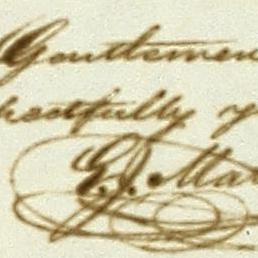 Gentlemen
pectfully y
E. J. Mar